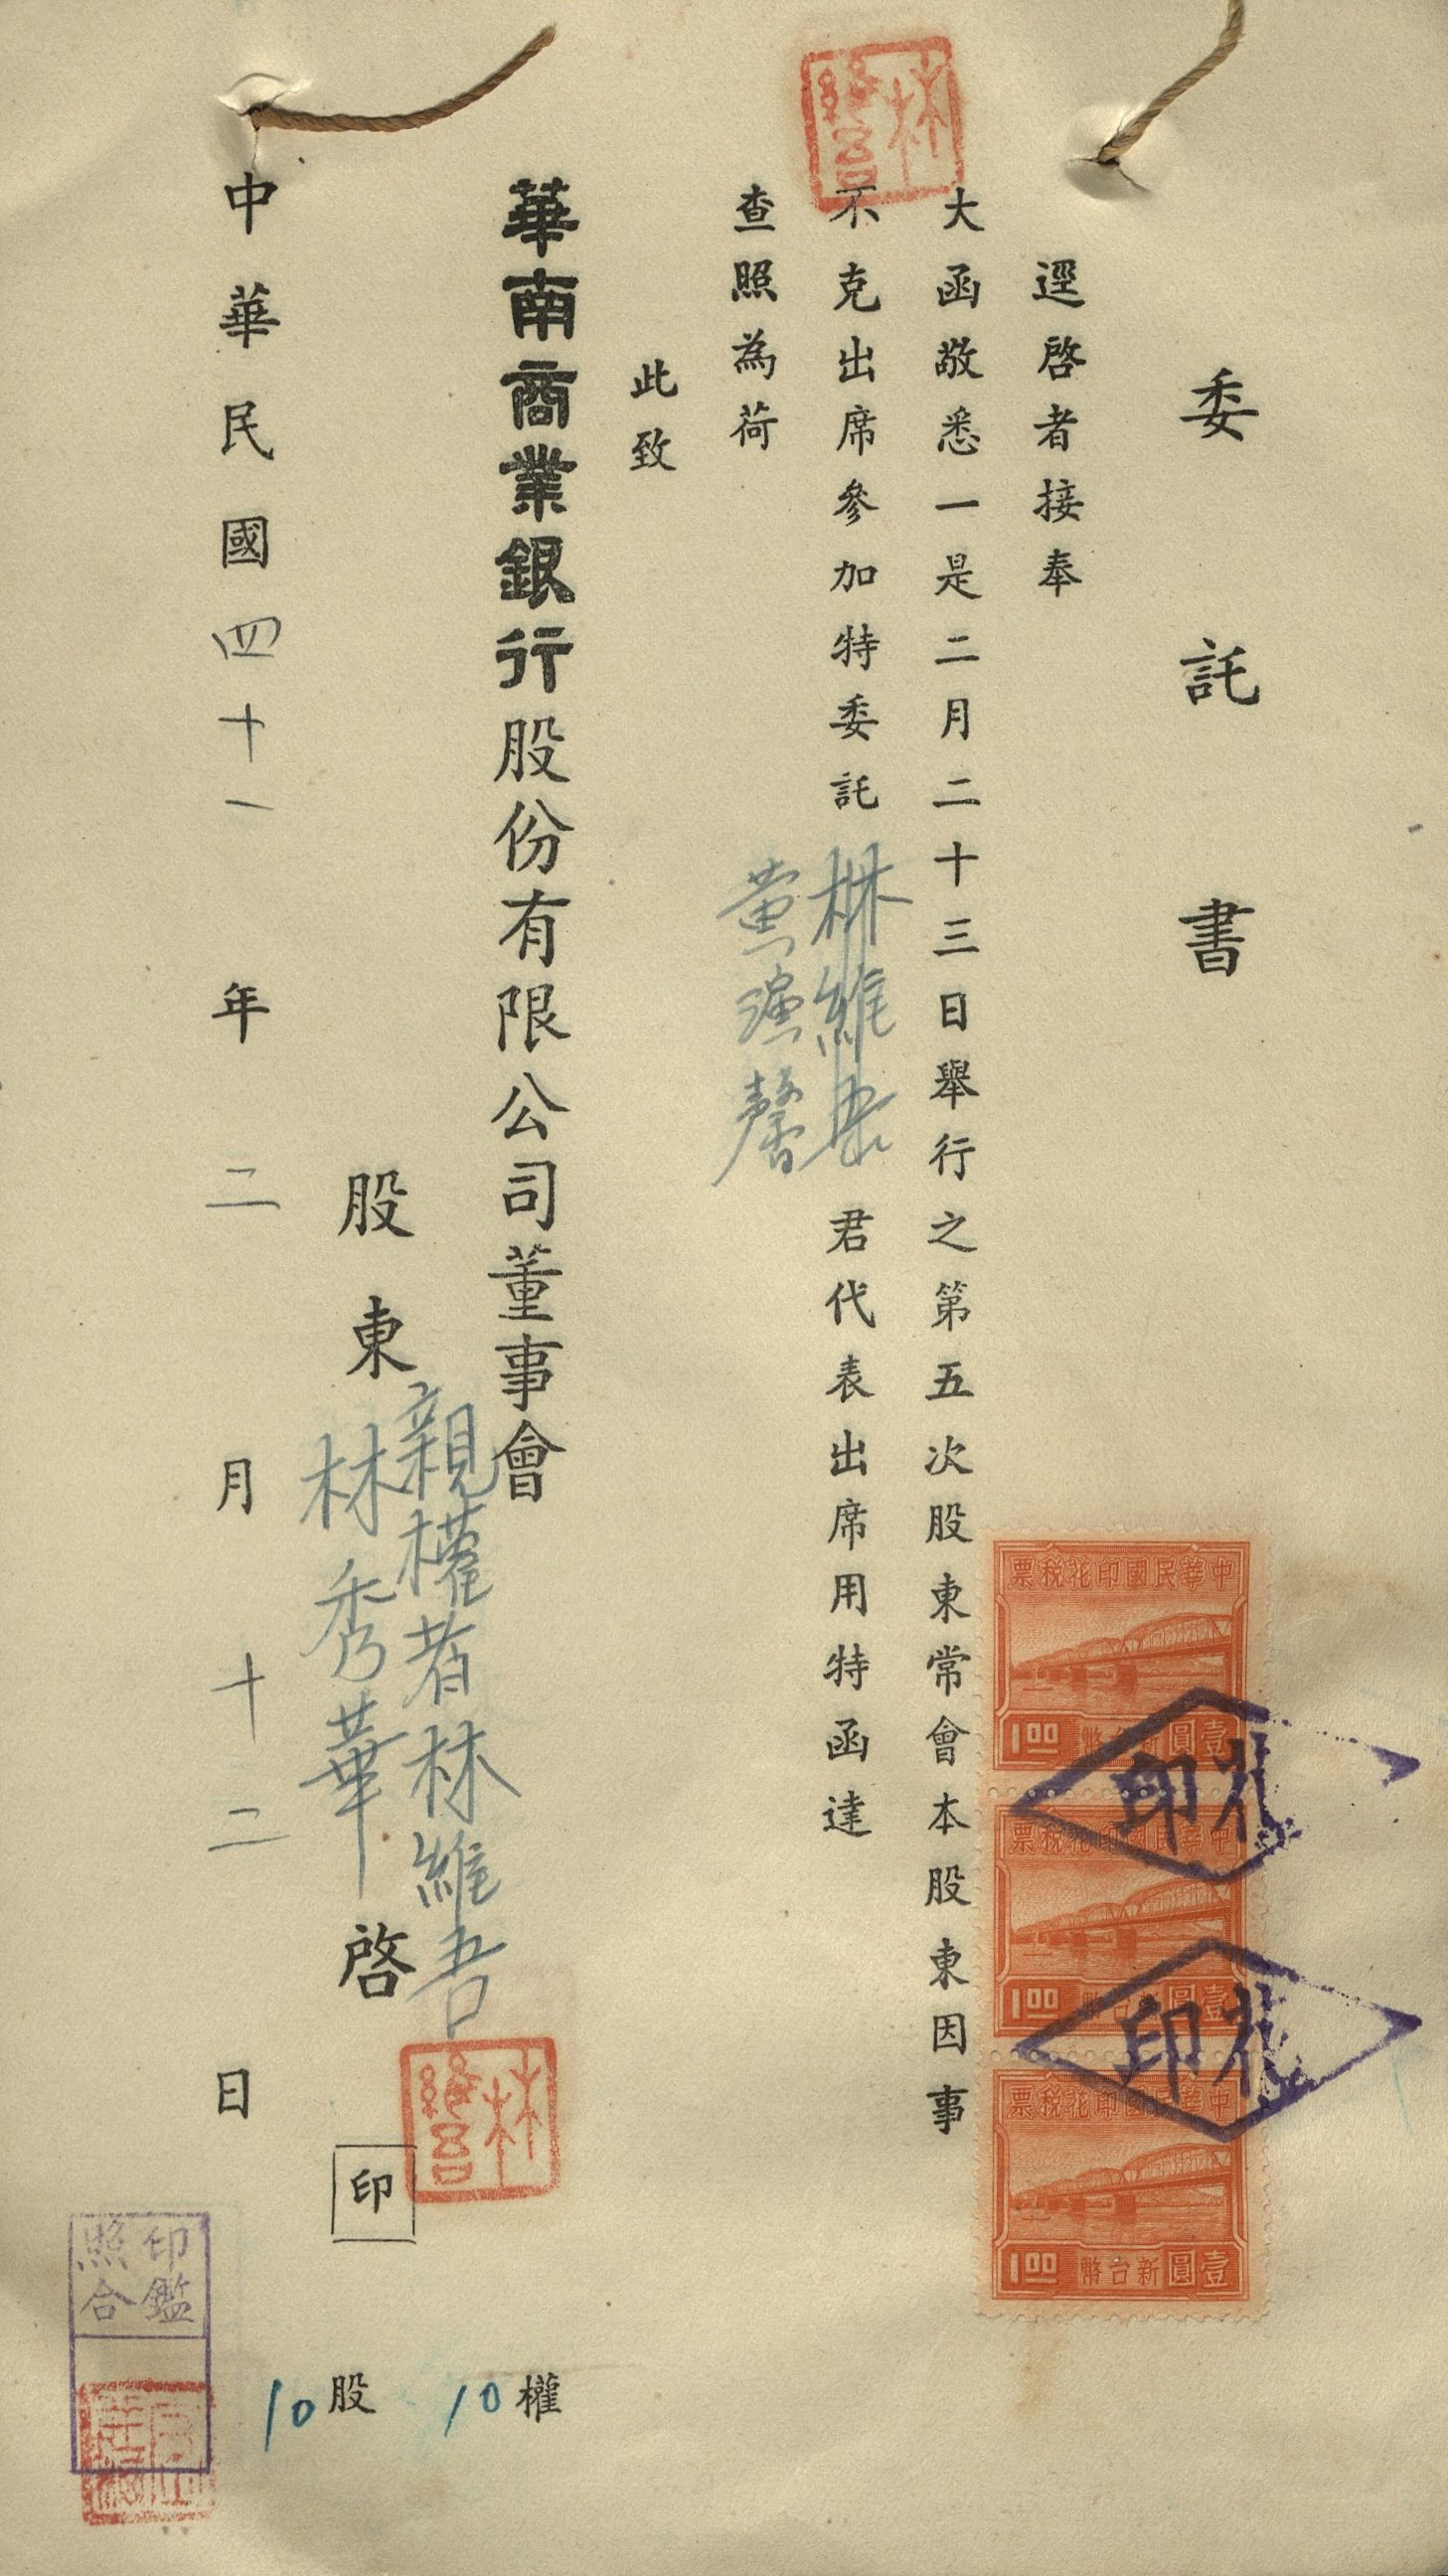 委託書
逕啓者接奉
大函敬悉一是二月二十三日舉行之第五次股東常會本股東因事
不克出席參加特委託林維吾君代表出席用特函達
黄演馨
查照為荷
此致
華南商業銀行股份有限公司董事會
親權者林維吾
股東林秀華啓
印
中華民國四十一年二月十二日
10權
10股
林維吾
林維吾
中華民國印花稅票
壹圓新台幣1.00
中華民國印花稅票
壹圓新台幣1.00
中華民國印花稅票
壹圓新台幣1.00
花印
花印
印鑑
照合